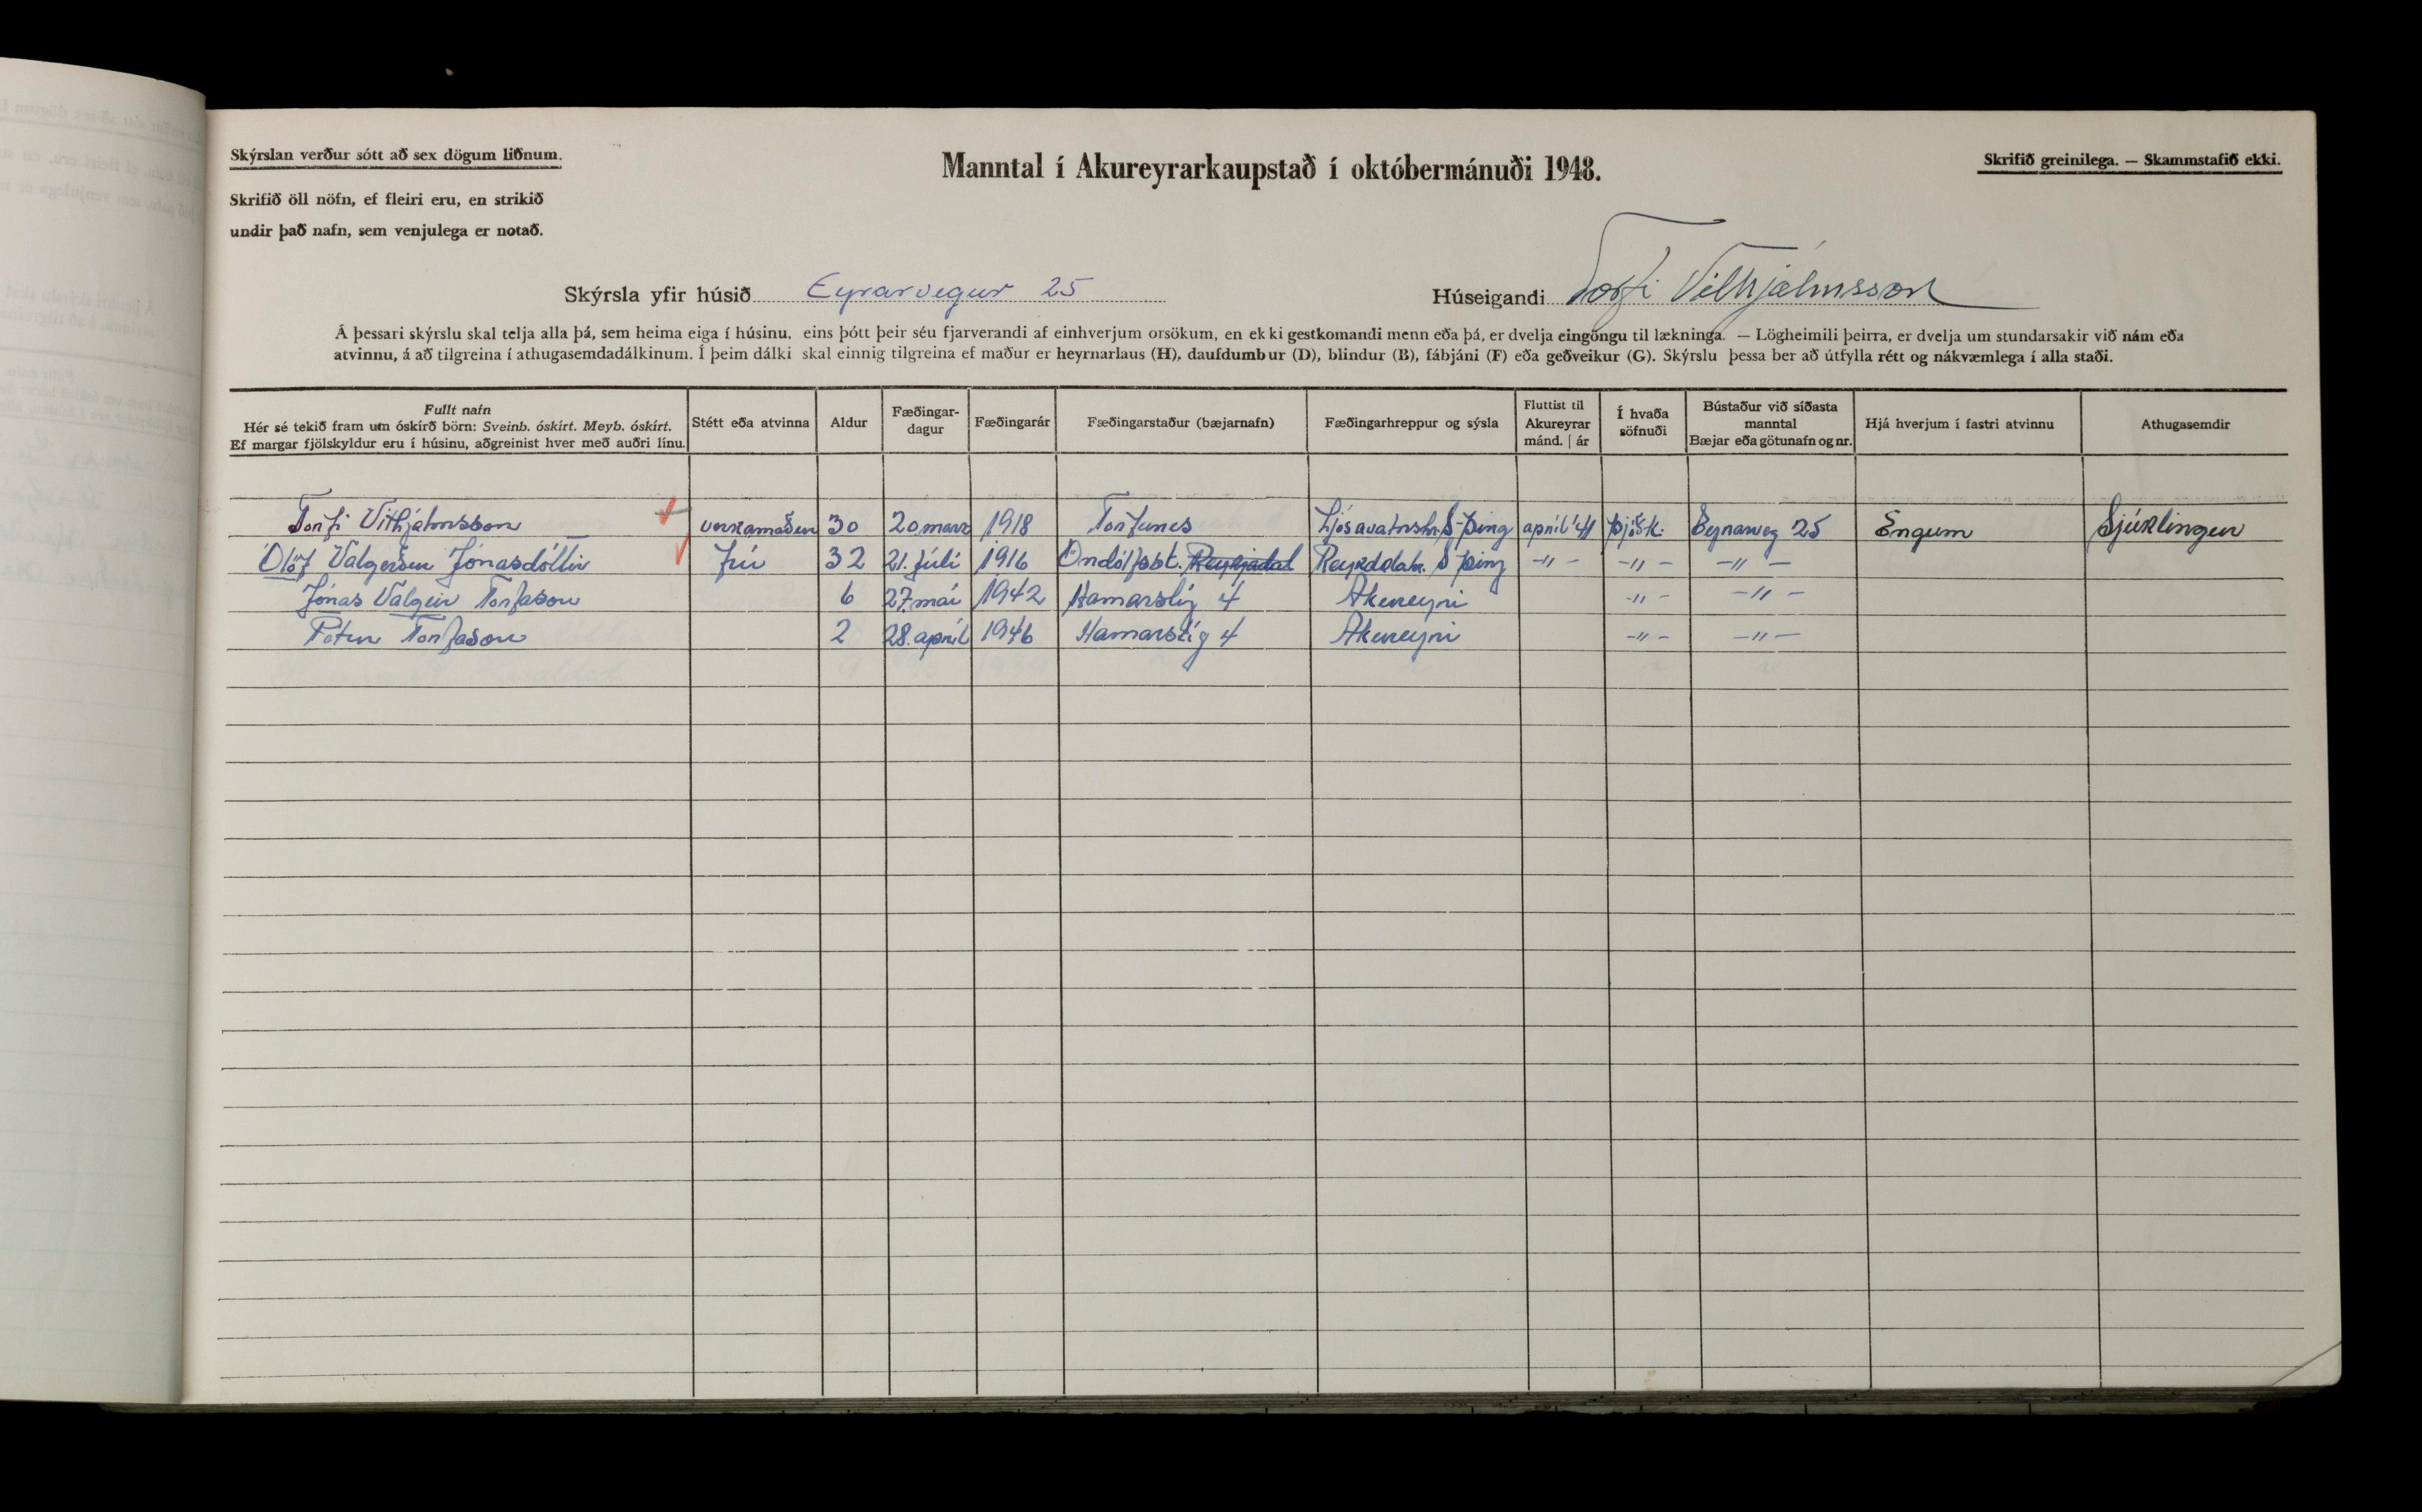 Skýrslan verður sótt að sex dögum liðnum.
Manntal í Akureyrarkaupstað í októbermánuði 1948.
Skrifið greinilega. — Skammstafið ekki.
Skrifið öll nöfn, ef fleiri eru, en strikið
undir það nafn, sem venjulega er notað.
Skýrsla yfir húsið Eyrarvegur 25
Húseigandi Torfi Vilhjálmsson
Á þessari skýrslu skal telja alla þá, sem heima eiga í húsinu, eins þótt þeir séu fjarverandi af einhverjum orsökum, en ekki gestkomandi menn eða þá, er dvelja eingöngu til lækninga. — Lögheimili þeirra, er dvelja um stundarsakir við nám eða
atvinnu, á að tilgreina í athugasemdadálkinum. Í þeim dálki skal einnig tilgreina ef maður er heyrnarlaus (H), daufdumbur (D), blindur (B), fábjáni (F) eða geðveikur (G). Skýrslu þessa ber að útfylla rétt og nákvæmlega í alla staði.
Fullt nafn
Hér sé tekið fram um óskírð börn: Sveinb. óskírt. Meyb. óskírt.
Ef margar fjölskyldur eru í húsinu, aðgreinist hver með auðri línu.
Stétt eða atvinna
Aldur
Fæðingar-
dagur
Fæðingarár
Fæðingarstaður (bæjarnafn)
Fæðingarhreppur og sýsla
Fluttist til
Akureyrar
mánd. | ár
Í hvaða
söfnuði
Bústaður við síðasta
manntal
Bæjar eða götunafn og nr.
Hjá hverjum í fastri atvinnu
Athugasemdir
Torfi Vilhjálmsson verkamaður 30 20. mars 1918 Torfunes Ljósavatnshr. S-Þing apríl '41 þjóðk. Eyrarveg 25 Engum Sjúklingur
Ólöf Valgerður Jónasdóttir frú 32 21. júlí 1916 Öndólfsst. Reykjadal Reykdælahr. S þing -〃- -〃- -〃-
Jónas Valgeir Torfason 6 27. maí 1942 Hamarstíg 4 Akureyri -〃- -〃-
Pétur Torfason 2 28. apríl 1946 Hamarstíg 4 Akureyri -〃- -〃-